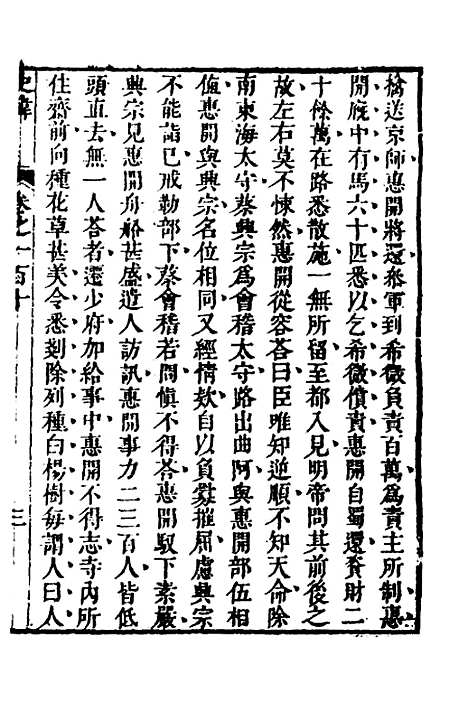 檎送京師惠開將還叅軍到希微負責百萬爲責主所制惠
開廐中有馬六十匹悉以乞希微償責惠開自蜀還資財二
十餘萬在路悉散施一無所留至都入見明帝問其前後之
故左右莫不悚然惠開從容荅曰臣唯知逆順不知天命除
南東海太守蔡興宗爲會稽太守路出曲阿與惠開部伍相
值惠開與興宗名位相同又經情欵自以負釁摧屈慮興宗
不能詣已戒勒部下蔡會稽若問愼不得荅惠開馭下素嚴
興宗見惠開舟船甚盛遣人訪訊惠開事力二三百人皆低
頭直去無一人荅者還少府加給事中惠開不得志寺內所
住齋前向種花草甚美令悉剗除列種白楊樹每謂人曰人
史緯
卷之一百十
三